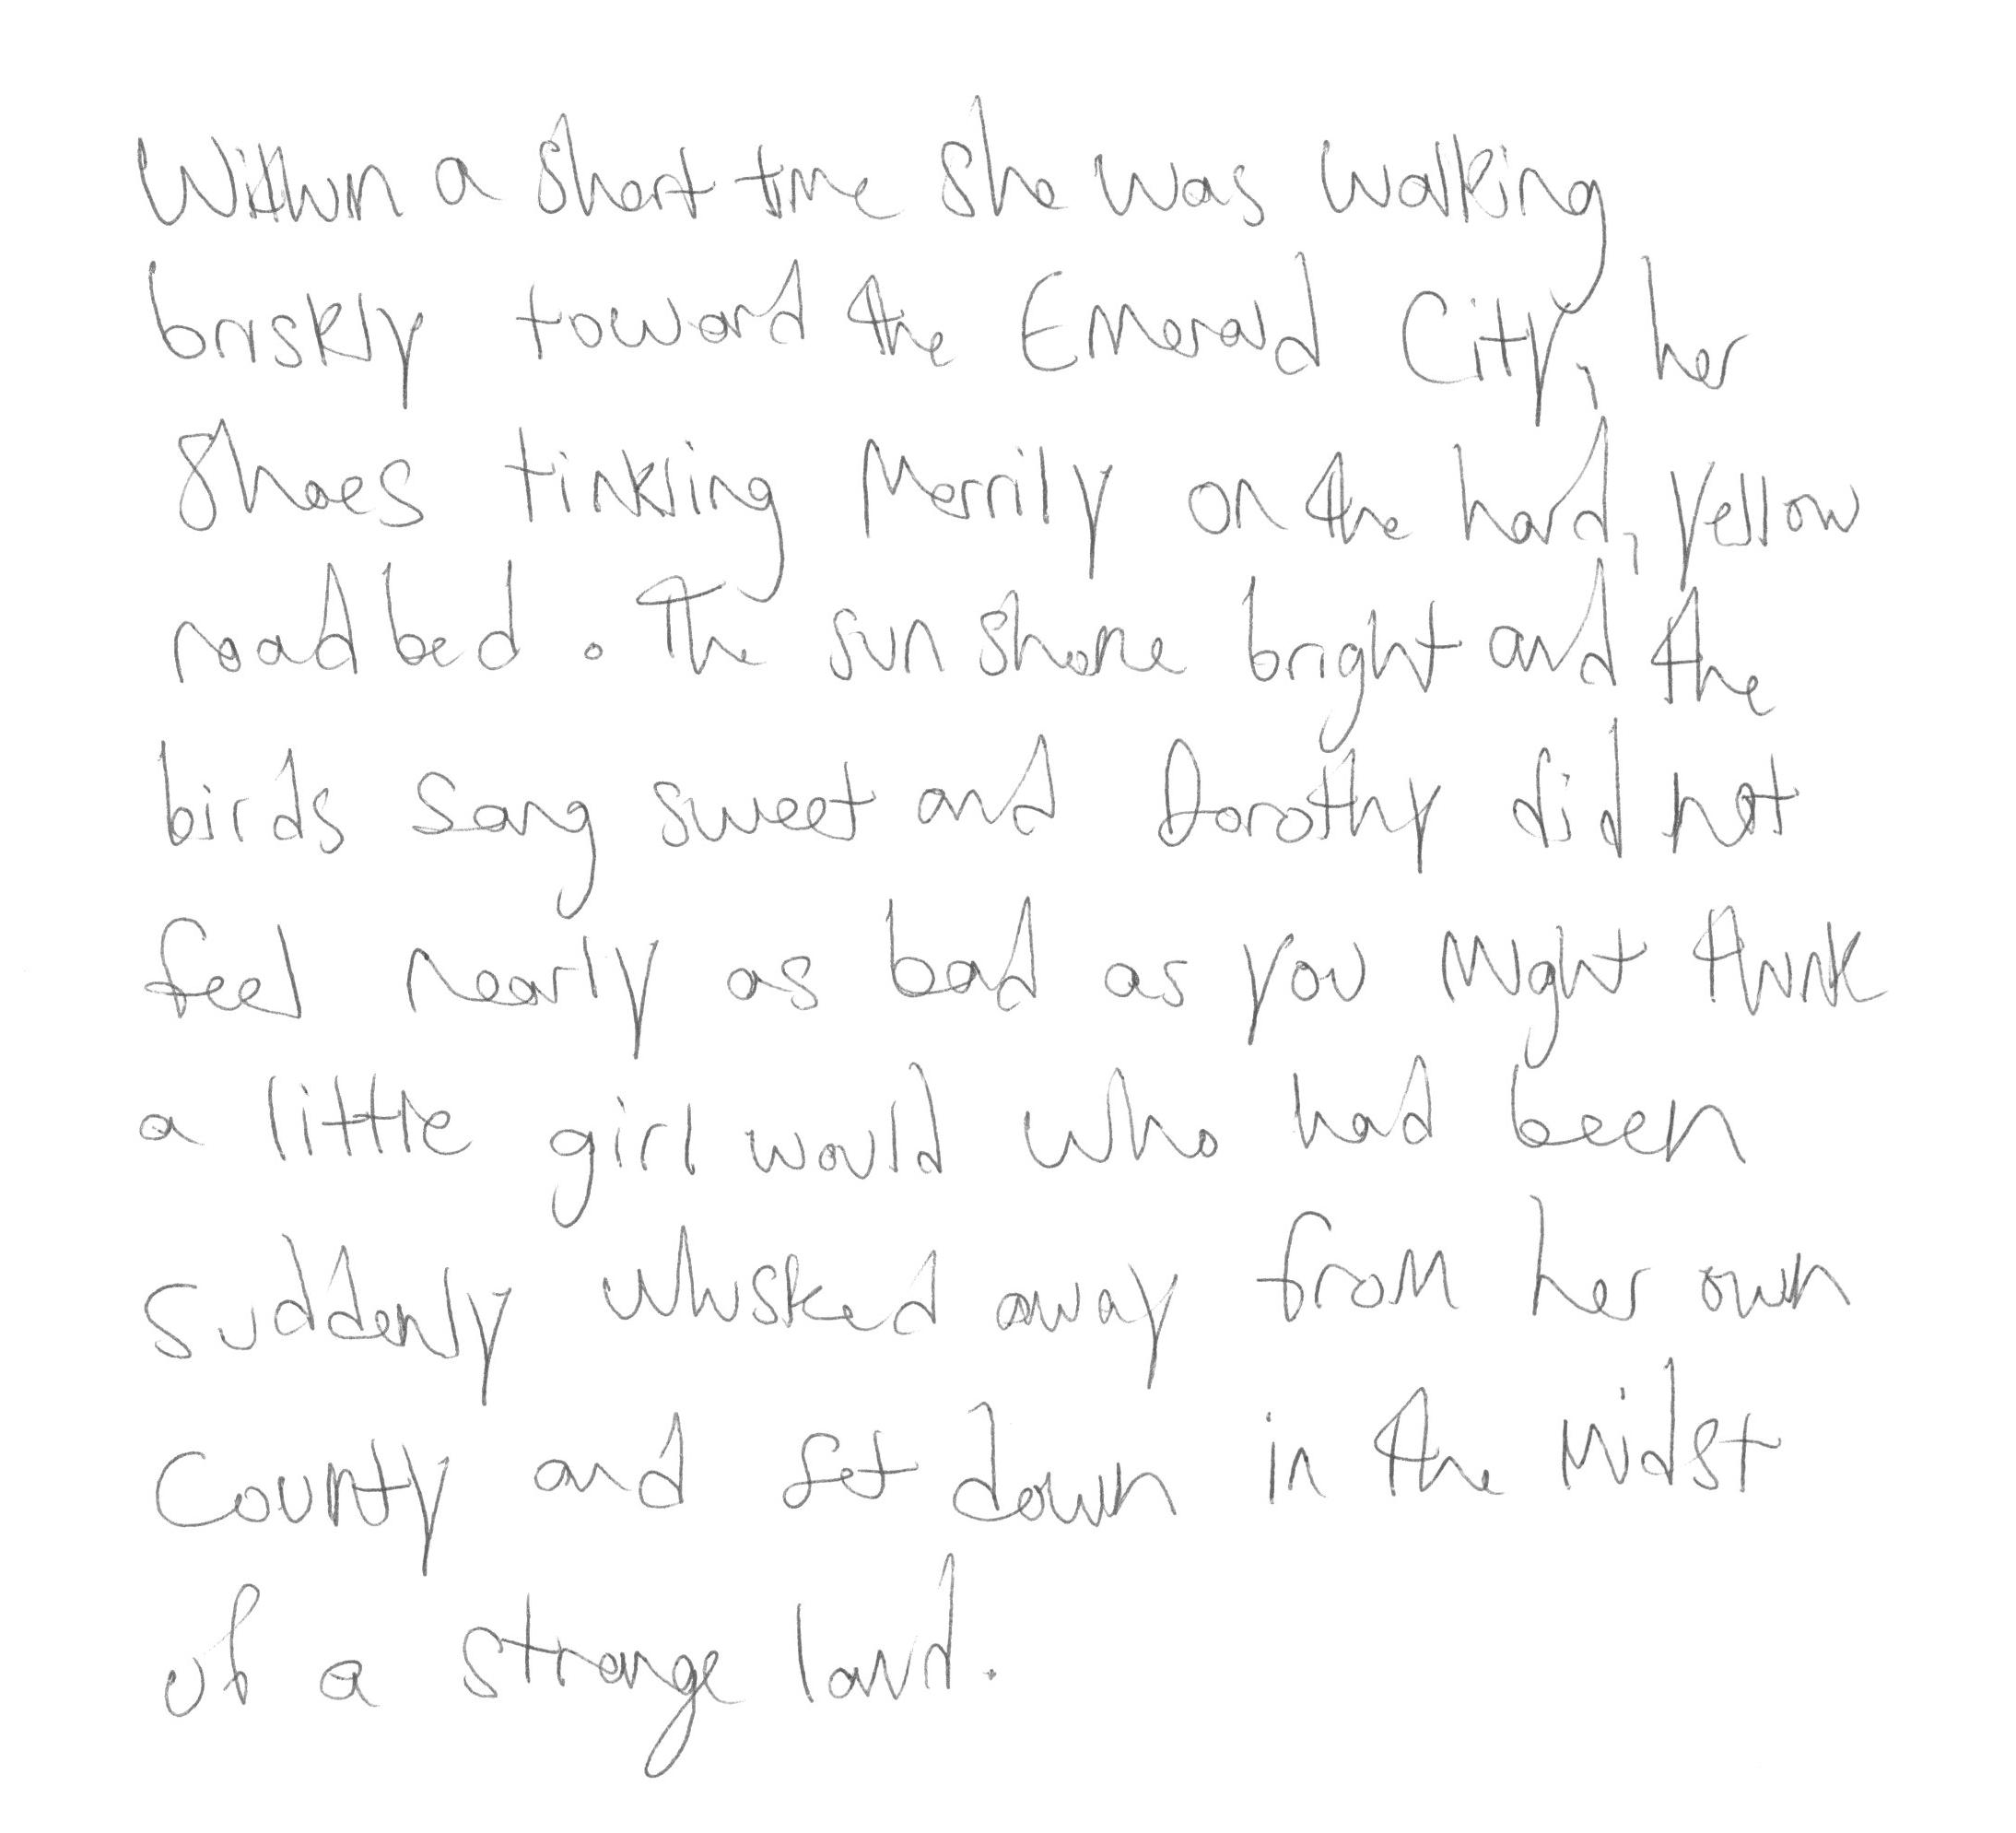 Within a short time she was walking
briskly toward the Emerald City, her
shoes tinkling merrily on the hard, yellow
roadbed. The sun shone bright and the
birds sang sweet and Dorothy did not
feel nearly as bad as you might think
a little girl would who had been
suddenly whisked away from her own
county and set down in the midst
of a strange land.